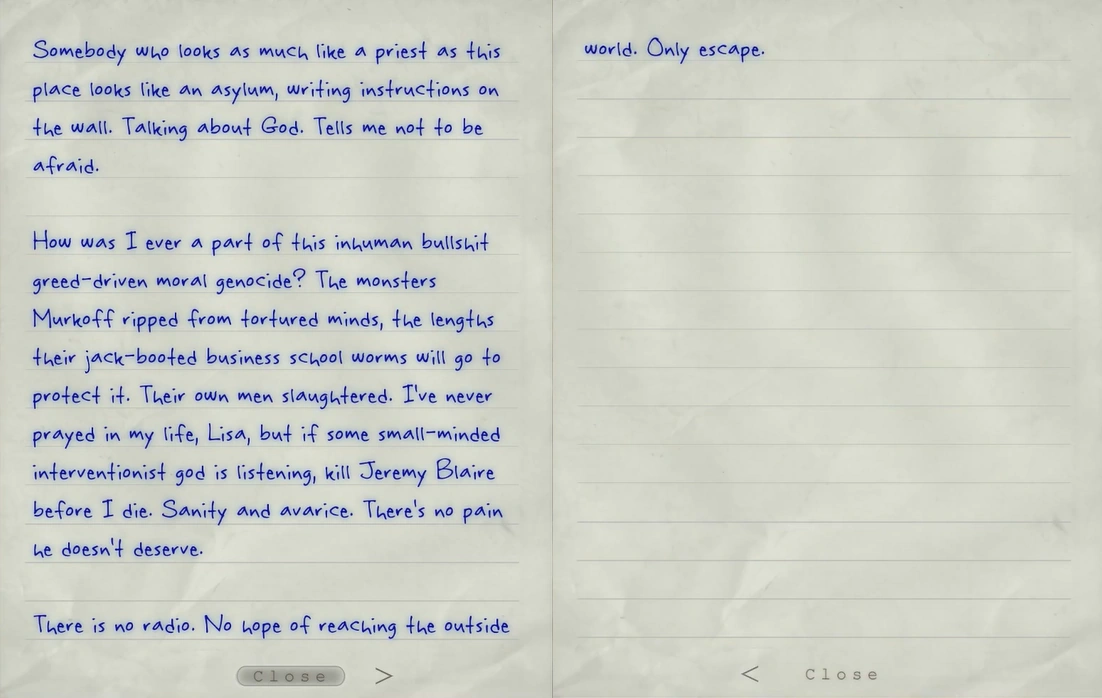 Somebody who looks as much like a priest as this
place looks like an asylum, writing instructions on
the wall. Talking about God. Tells me not to be
afraid.
How was I ever a part of this inhuman bullshit
greed-driven moral genocide? The monsters
Murkoff ripped from tortured minds, the lengths
their jack-booted business school worms will go to
protect it. Their own men slaughtered. I've never
prayed in my life, Lisa, but if some small-minded
interventionist god is listening, kill Jeremy Blaire
before I die. Sanity and avarice. There's no pain
he doesn't deserve.
There is no radio. No hope of reaching the outside
Close >
world. Only escape.
< Close